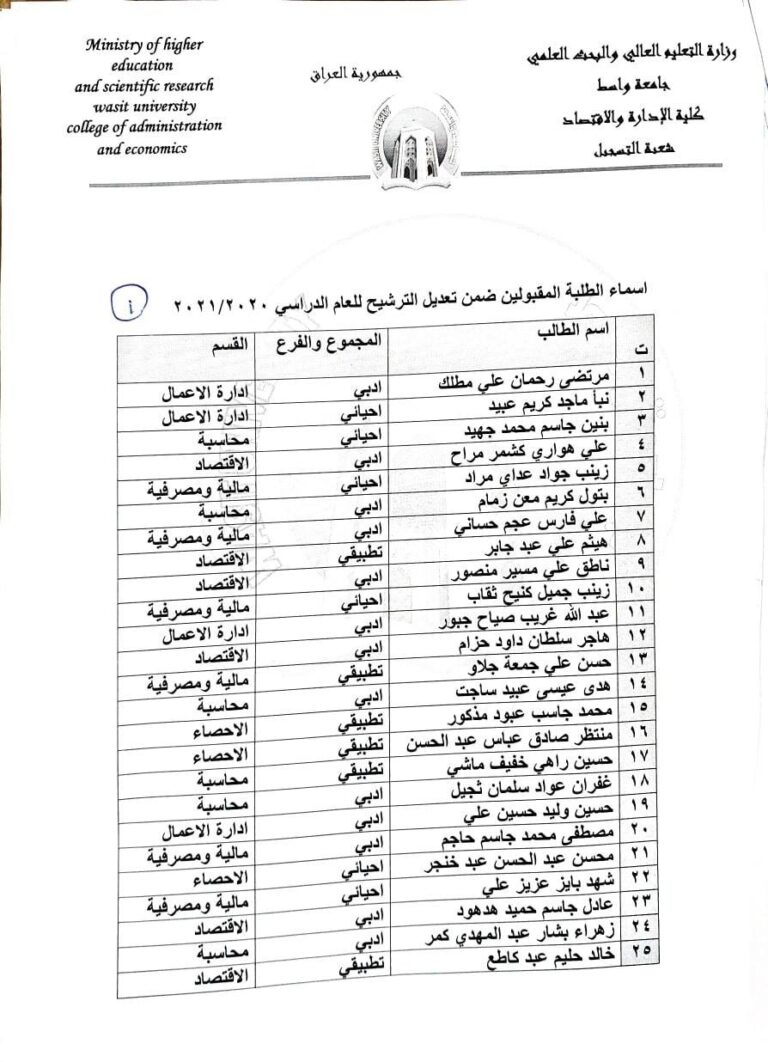 Ministry of higher
education
and scientific research
wasit university
college of administration
and economics
جمهورية العراق
وزارة التعليم العالي والبحث العلمي
جامعة واسط
كلية الإدارة والاقتصاد
شعبة التسجيل
اسماء الطلبة المقبولين ضمن تعديل الترشيح للعام الدراسي ٢٠٢١/٢٠٢٠
ت اسم الطالب المجموع والفرع القسم
١ مرتضى رحمان علي مطلك ادبي ادارة الاعمال
٢ نبأ ماجد كريم عبيد احيائي ادارة الاعمال
٣ بنين جاسم محمد جهيد احيائي محاسبة
٤ علي هواري كشمر مراح ادبي الاقتصاد
٥ زينب جواد عداي مراد احيائي مالية ومصرفية
٦ بتول كريم معن زمام ادبي محاسبة
٧ علي فارس عجم حساني ادبي مالية ومصرفية
٨ هيثم علي عبد جابر تطبيقي الاقتصاد
٩ ناطق علي مسير منصور ادبي الاقتصاد
١٠ زينب جميل كنيح ثقاب احيائي مالية ومصرفية
١١ عبد الله غريب صياح جبور ادبي ادارة الاعمال
١٢ هاجر سلطان داود حزام ادبي الاقتصاد
١٣ حسن علي جمعة جلاو تطبيقي مالية ومصرفية
١٤ هدى عيسى عبيد ساجت ادبي محاسبة
١٥ محمد جاسب عبود مذكور تطبيقي الاحصاء
١٦ منتظر صادق عباس عبد الحسن تطبيقي الاحصاء
١٧ حسين راهي خفيف ماشي تطبيقي محاسبة
١٨ غفران عواد سلمان ثجيل ادبي محاسبة
١٩ حسين وليد حسين علي ادبي ادارة الاعمال
٢٠ مصطفى محمد جاسم حاجم ادبي مالية ومصرفية
٢١ محسن عبد الحسن عبد خنجر احيائي الاحصاء
٢٢ شهد بايز عزيز علي احيائي مالية ومصرفية
٢٣ عادل جاسم حميد هدهود ادبي الاقتصاد
٢٤ زهراء بشار عبد المهدي كمر ادبي محاسبة
٢٥ خالد حليم عبد كاطع تطبيقي الاقتصاد